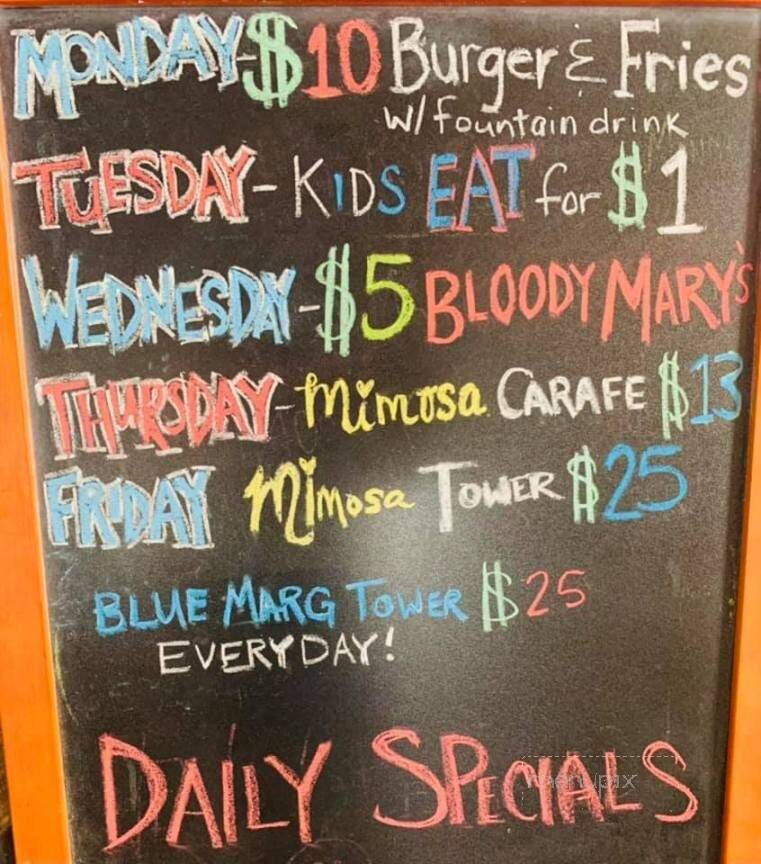 MONDAY-$10 Burger & Fries
w/ fountain drink
TUESDAY- KIDS EAT for $1
WEDNESDAY-$5 BLOODY MARY'S
THURSDAY-Mimosa CARAFE $13
FRIDAY Mimosa TOWER $25
BLUE MARG TOWER $25
EVERYDAY!
DAILY SPECIALS
menupix